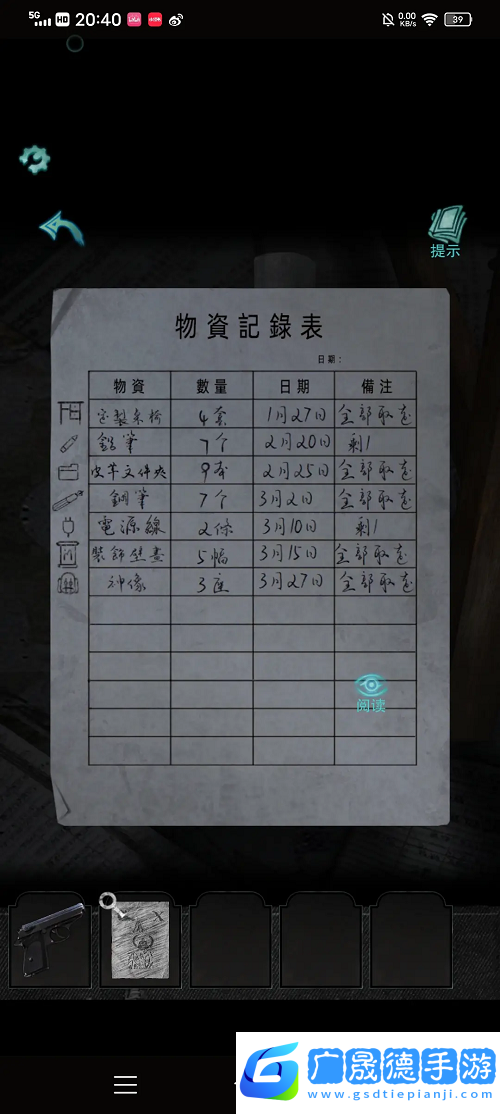 5G HD 20:40 0.00 KB/s 39
提示
物資記錄表
日期：
物資 數量 日期 備注
定製桌椅 4套 1月27日 全部取走
鉛筆 7个 2月20日 剩1
皮革文件夾 9本 2月25日 全部取走
鋼筆 7个 3月2日 全部取走
電源線 2條 3月10日 剩1
裝飾壁畫 5幅 3月15日 全部取走
神像 3座 3月27日 全部取走
阅读
广晟德手游
www.gsdtiepianji.com